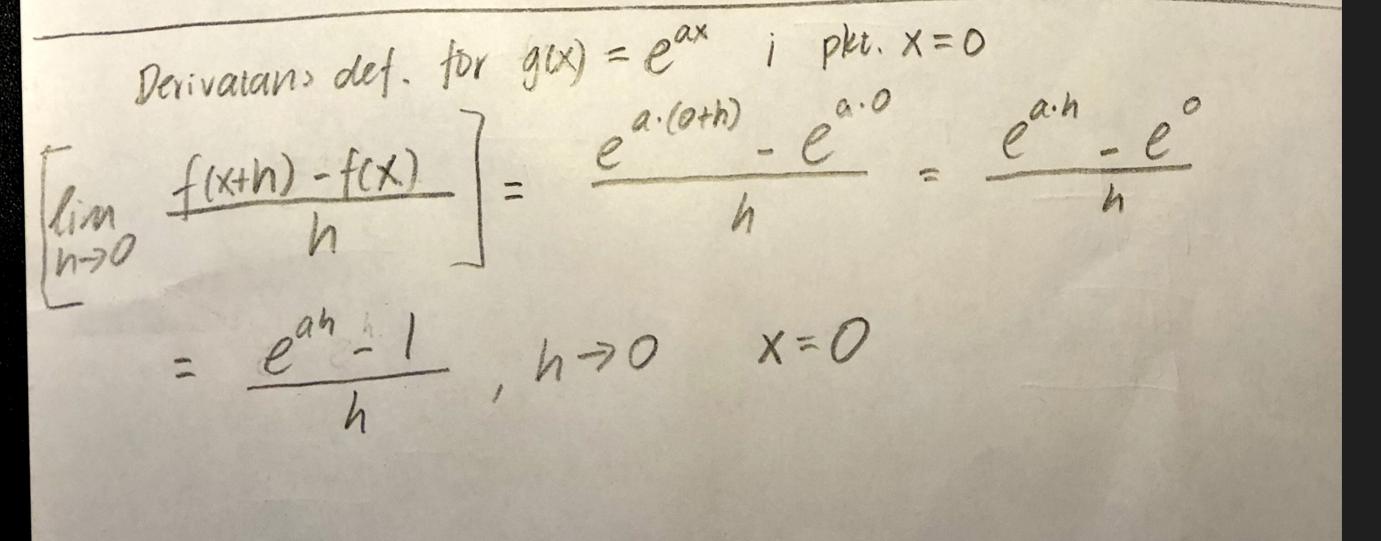 Derivatans def. för g(x) = e^{ax} i pkt. x=0
[lim_{h→0} \frac{f(x+h) - f(x)}{h}] = \frac{e^{a·(0+h)} - e^{a·0}}{h} = \frac{e^{a·h} - e^{0}}{h}
= \frac{e^{ah} - 1}{h}, h→0 x=0